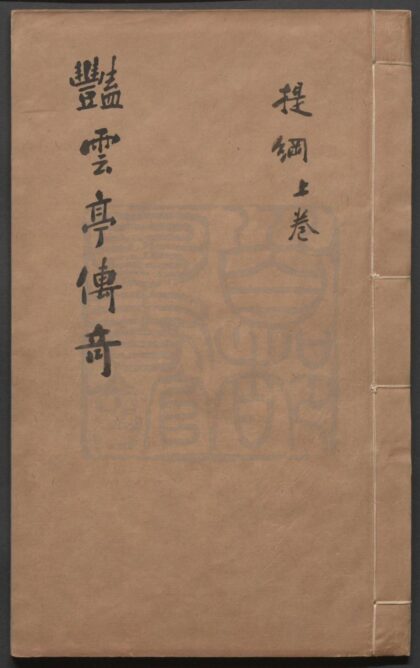 提綱上卷
豔雲亭傳奇